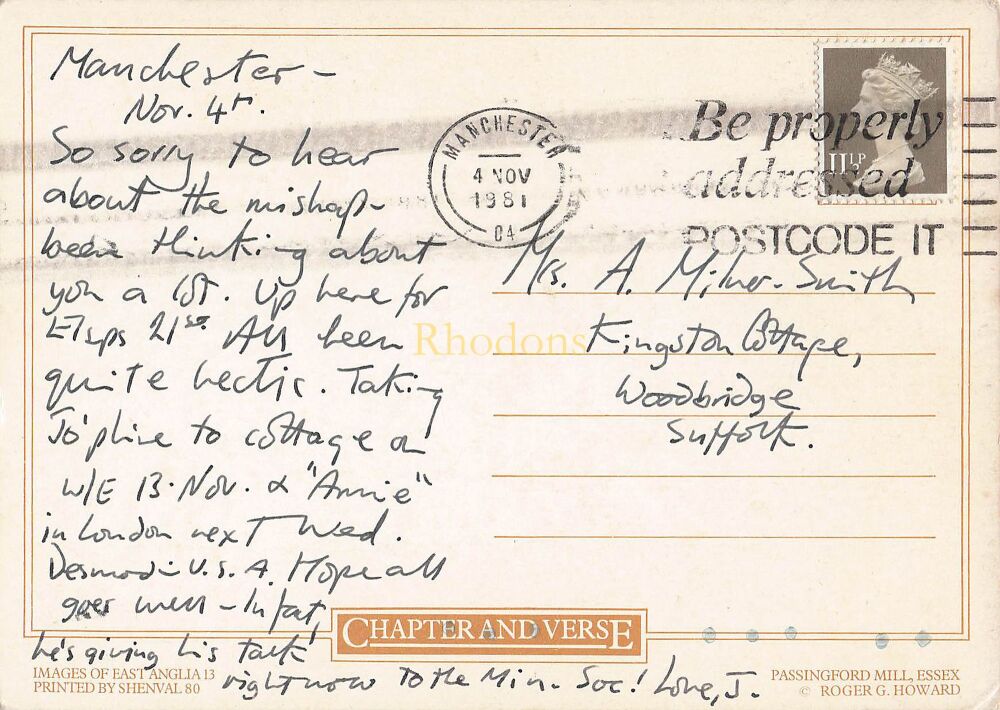 Manchester –
Nov. 4th.
So sorry to hear
about the mishap –
been thinking about
you a lot. Up here for
21st All been
quite hectic. Taking
to cottage on
W/E 13. Nov. & "Annie"
in London next Wed.
Desmond in U.S.A. Hope all
goes well – In fact,
he's giving his talk
right now to the Min. Soc! Love, J.
MANCHESTER
4 NOV
1981
04
Be properly
addressed
POSTCODE IT
11½P
Mrs. A. Milner-Smith
Kingston Cottage,
Woodbridge
Suffolk.
Rhodons
CHAPTER AND VERSE
IMAGES OF EAST ANGLIA 13
PRINTED BY SHENVAL 80
PASSINGFORD MILL, ESSEX
© ROGER G. HOWARD